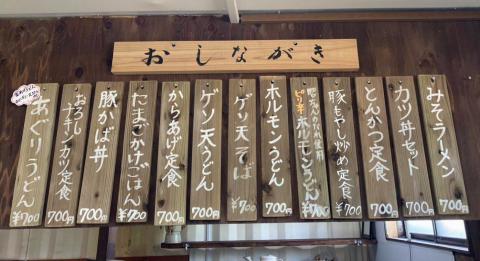 おしながき
みそラーメン 700円
カツ丼セット 700円
とんかつ定食 700円
豚もやし炒め定食 ¥700
ピリ辛ホルモンうどん ¥700
ホルモンうどん 700円
ゲソ天そば ¥700
ゲソ天うどん 700円
からあげ定食 700円
たまごかけごはん ¥700
豚かば丼 700円
おろしチキンカツ定食 700円
あぐりうどん ¥700